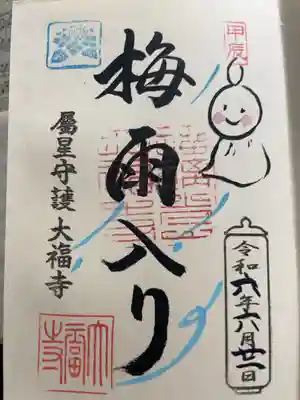 甲辰
梅雨入り
屬星守護 大福寺
令和六年六月廿一日
大福寺